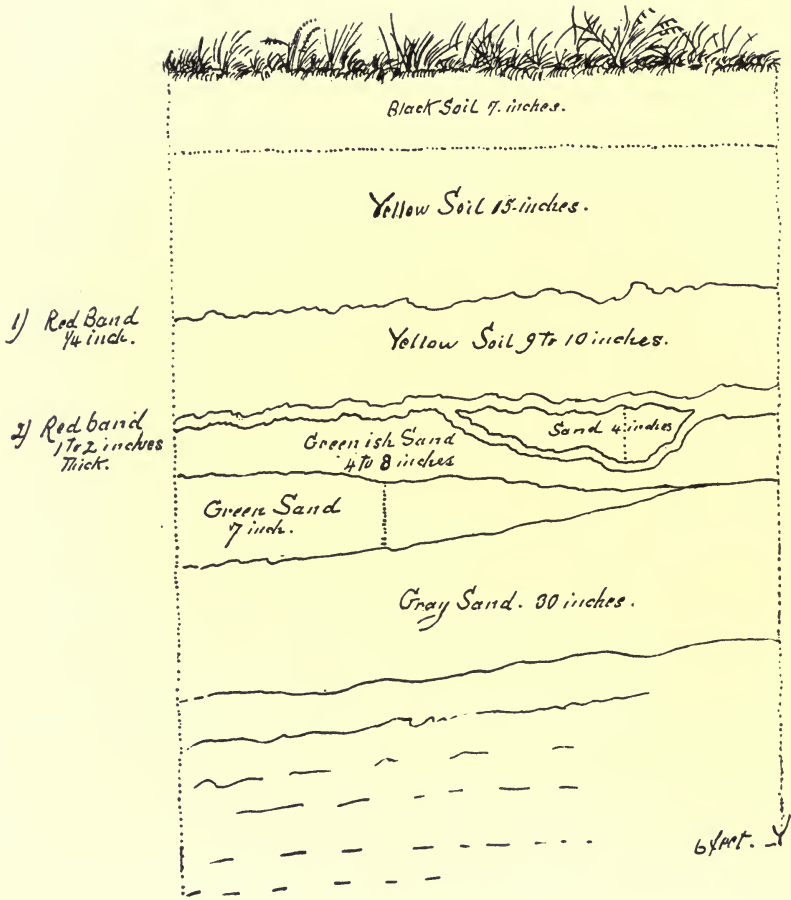 Black Soil 7. inches.
Yellow Soil 15 inches.
1) Red Band
1/4 inch.
Yellow Soil 9 to 10 inches.
2) Red band
1 to 2 inches
Thick.
Sand 4 inches
Greenish Sand
4 to 8 inches
Green Sand
7 inch.
Gray Sand. 30 inches.
6 feet.